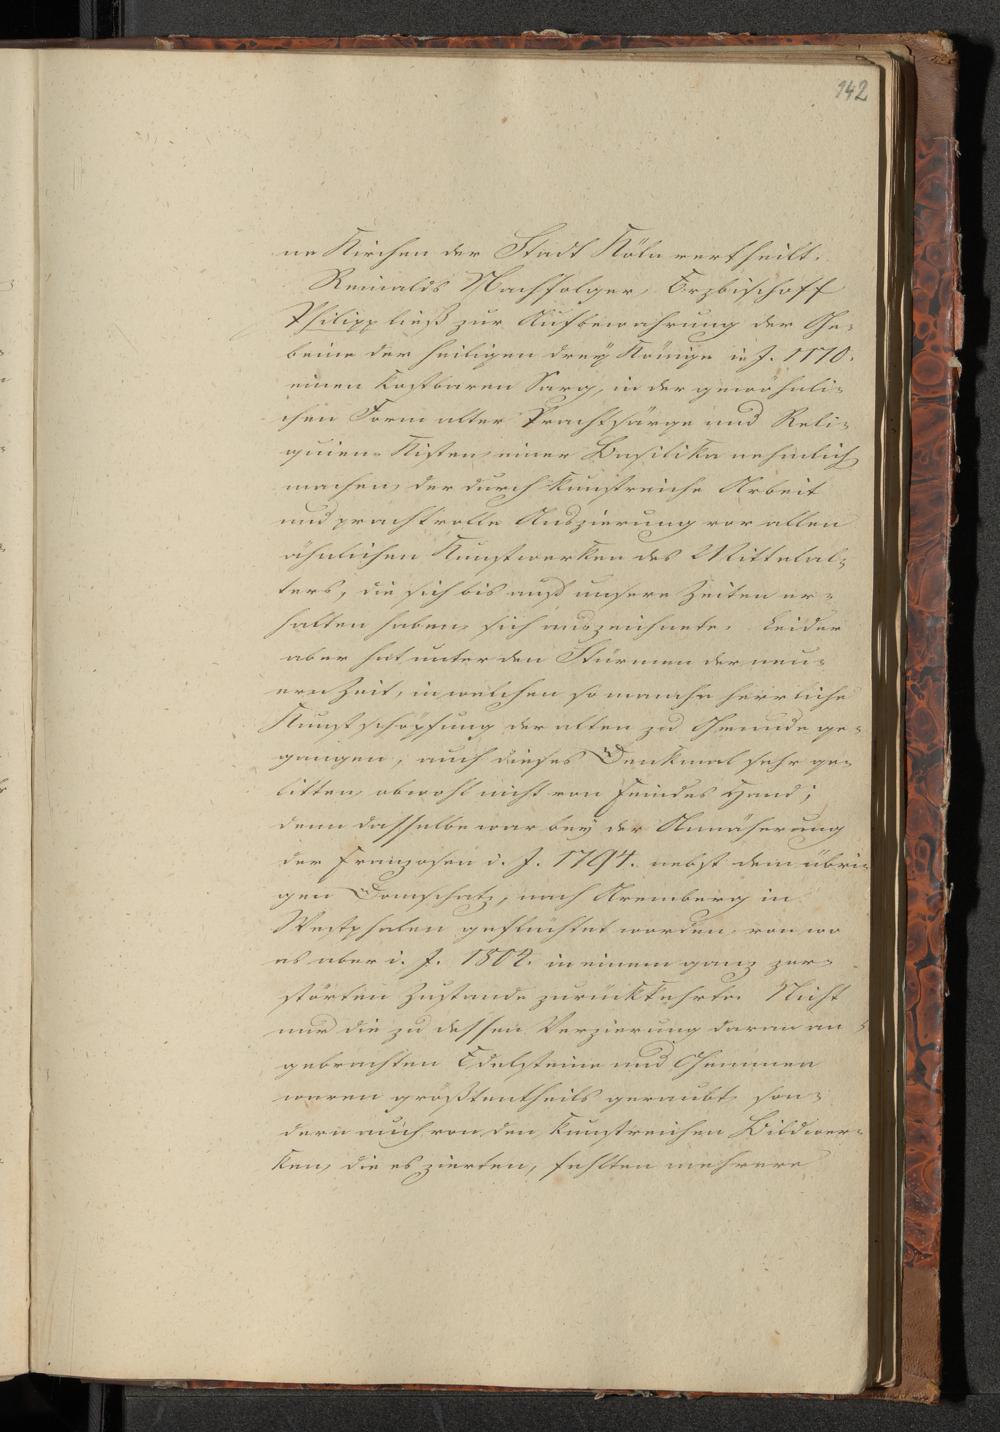 142
ne Kirchen der Stadt Köln vertheilt.
Reinalds Nachfolger, Erzbischoff
Philipp ließ zur Aufbewahrung der Ge-
beine der heiligen drey Könige i. J. 1170.
einen kostbaren Sarg, in der gewöhnli-
chen Form alter Prachtsärge und Reli-
quien-Kisten, einer Basilika nehmlich
machen, der durch kunstreiche Arbeit
und prachtvolle Auszierung vor allen
ähnlichen Kunstwerken des Mittelal-
ters, die sich bis auf unsere Zeiten er-
halten haben, sich auszeichnete. Leider
aber hat unter den Stürmen der neu-
ern Zeit, in welchen so manche herrliche
Kunstschöpfung der alten zu Grunde ge-
gangen, auch dieses Denkmal sehr ge-
litten, obwohl nicht von Feindes Hand;
denn dasselbe war bey der Annäherung
der Franzosen i. J. 1794. nebst dem übri-
gen Domschatz, nach Aremberg in
Westphalen geflüchtet worden, von wo
es aber i. J. 1804. in einem ganz zer-
störten Zustande zurückkehrte. Nicht
nur die zu dessen Verzierung daran an-
gebrachten Edelsteine und Gemmen
waren größtentheils geraubt, son-
dern auch von den kunstreichen Bildwer-
ken, die es zierten, fehlten mehrere